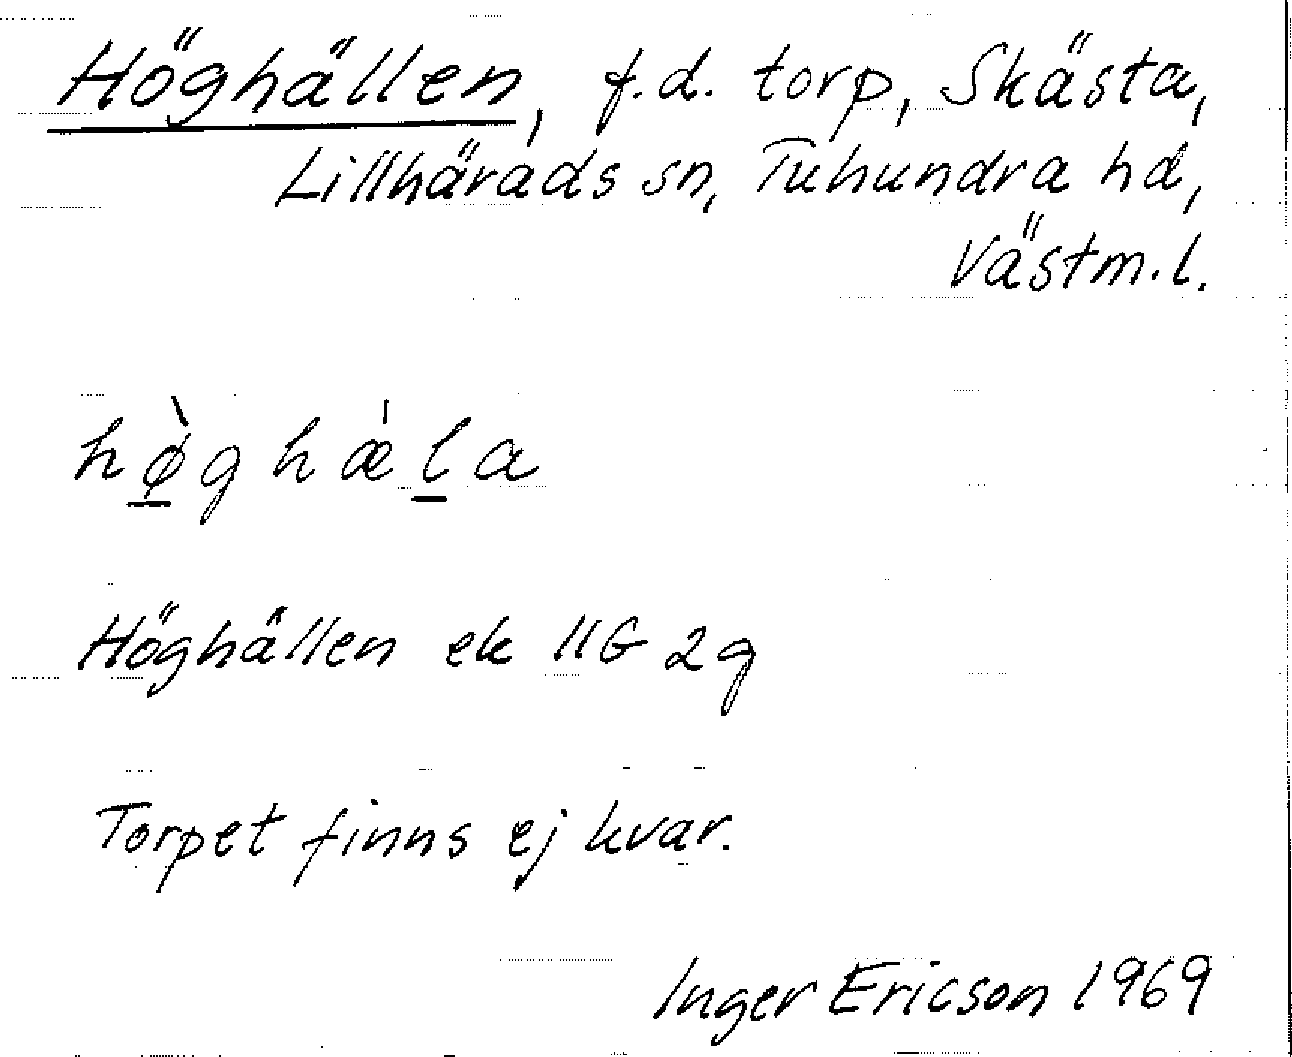 Höghällen, f.d. torp, Skästa,
Lillhärads sn, Tuhundra hd,
Västm.l.
hø̀ghæ̍la
Höghällen ek 11G 2g
Torpet finns ej kvar.
Inger Ericson 1969